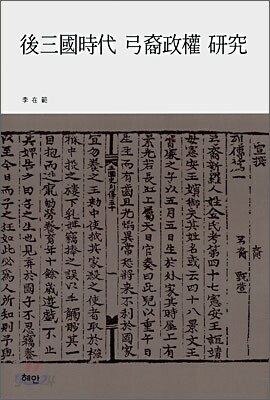 後三國時代 弓裔政權 研究
李在範
宣撰
弓裔 甄萱
弓裔新羅人姓金氏考第四十七憲安王誼
靖母憲安王嬪御失其姓名或云四十八景文王
膺廉之子以五月五日生於外家其時屋上有
素光若長虹上屬天日官奏曰此兒以重午日
生生而有齒且光焰異常恐將來不利於國家
宜勿養之王勅中使抵其家殺之使者取於襁
褓中投之樓下乳婢竊捧之誤以手觸眇其一
目抱而逃竄劬勞養育年十餘歲遊戲不止其
婢告之曰子之生也見棄於國予不忍竊養
以至今日而子之狂如此必爲人所知則予與
혜안